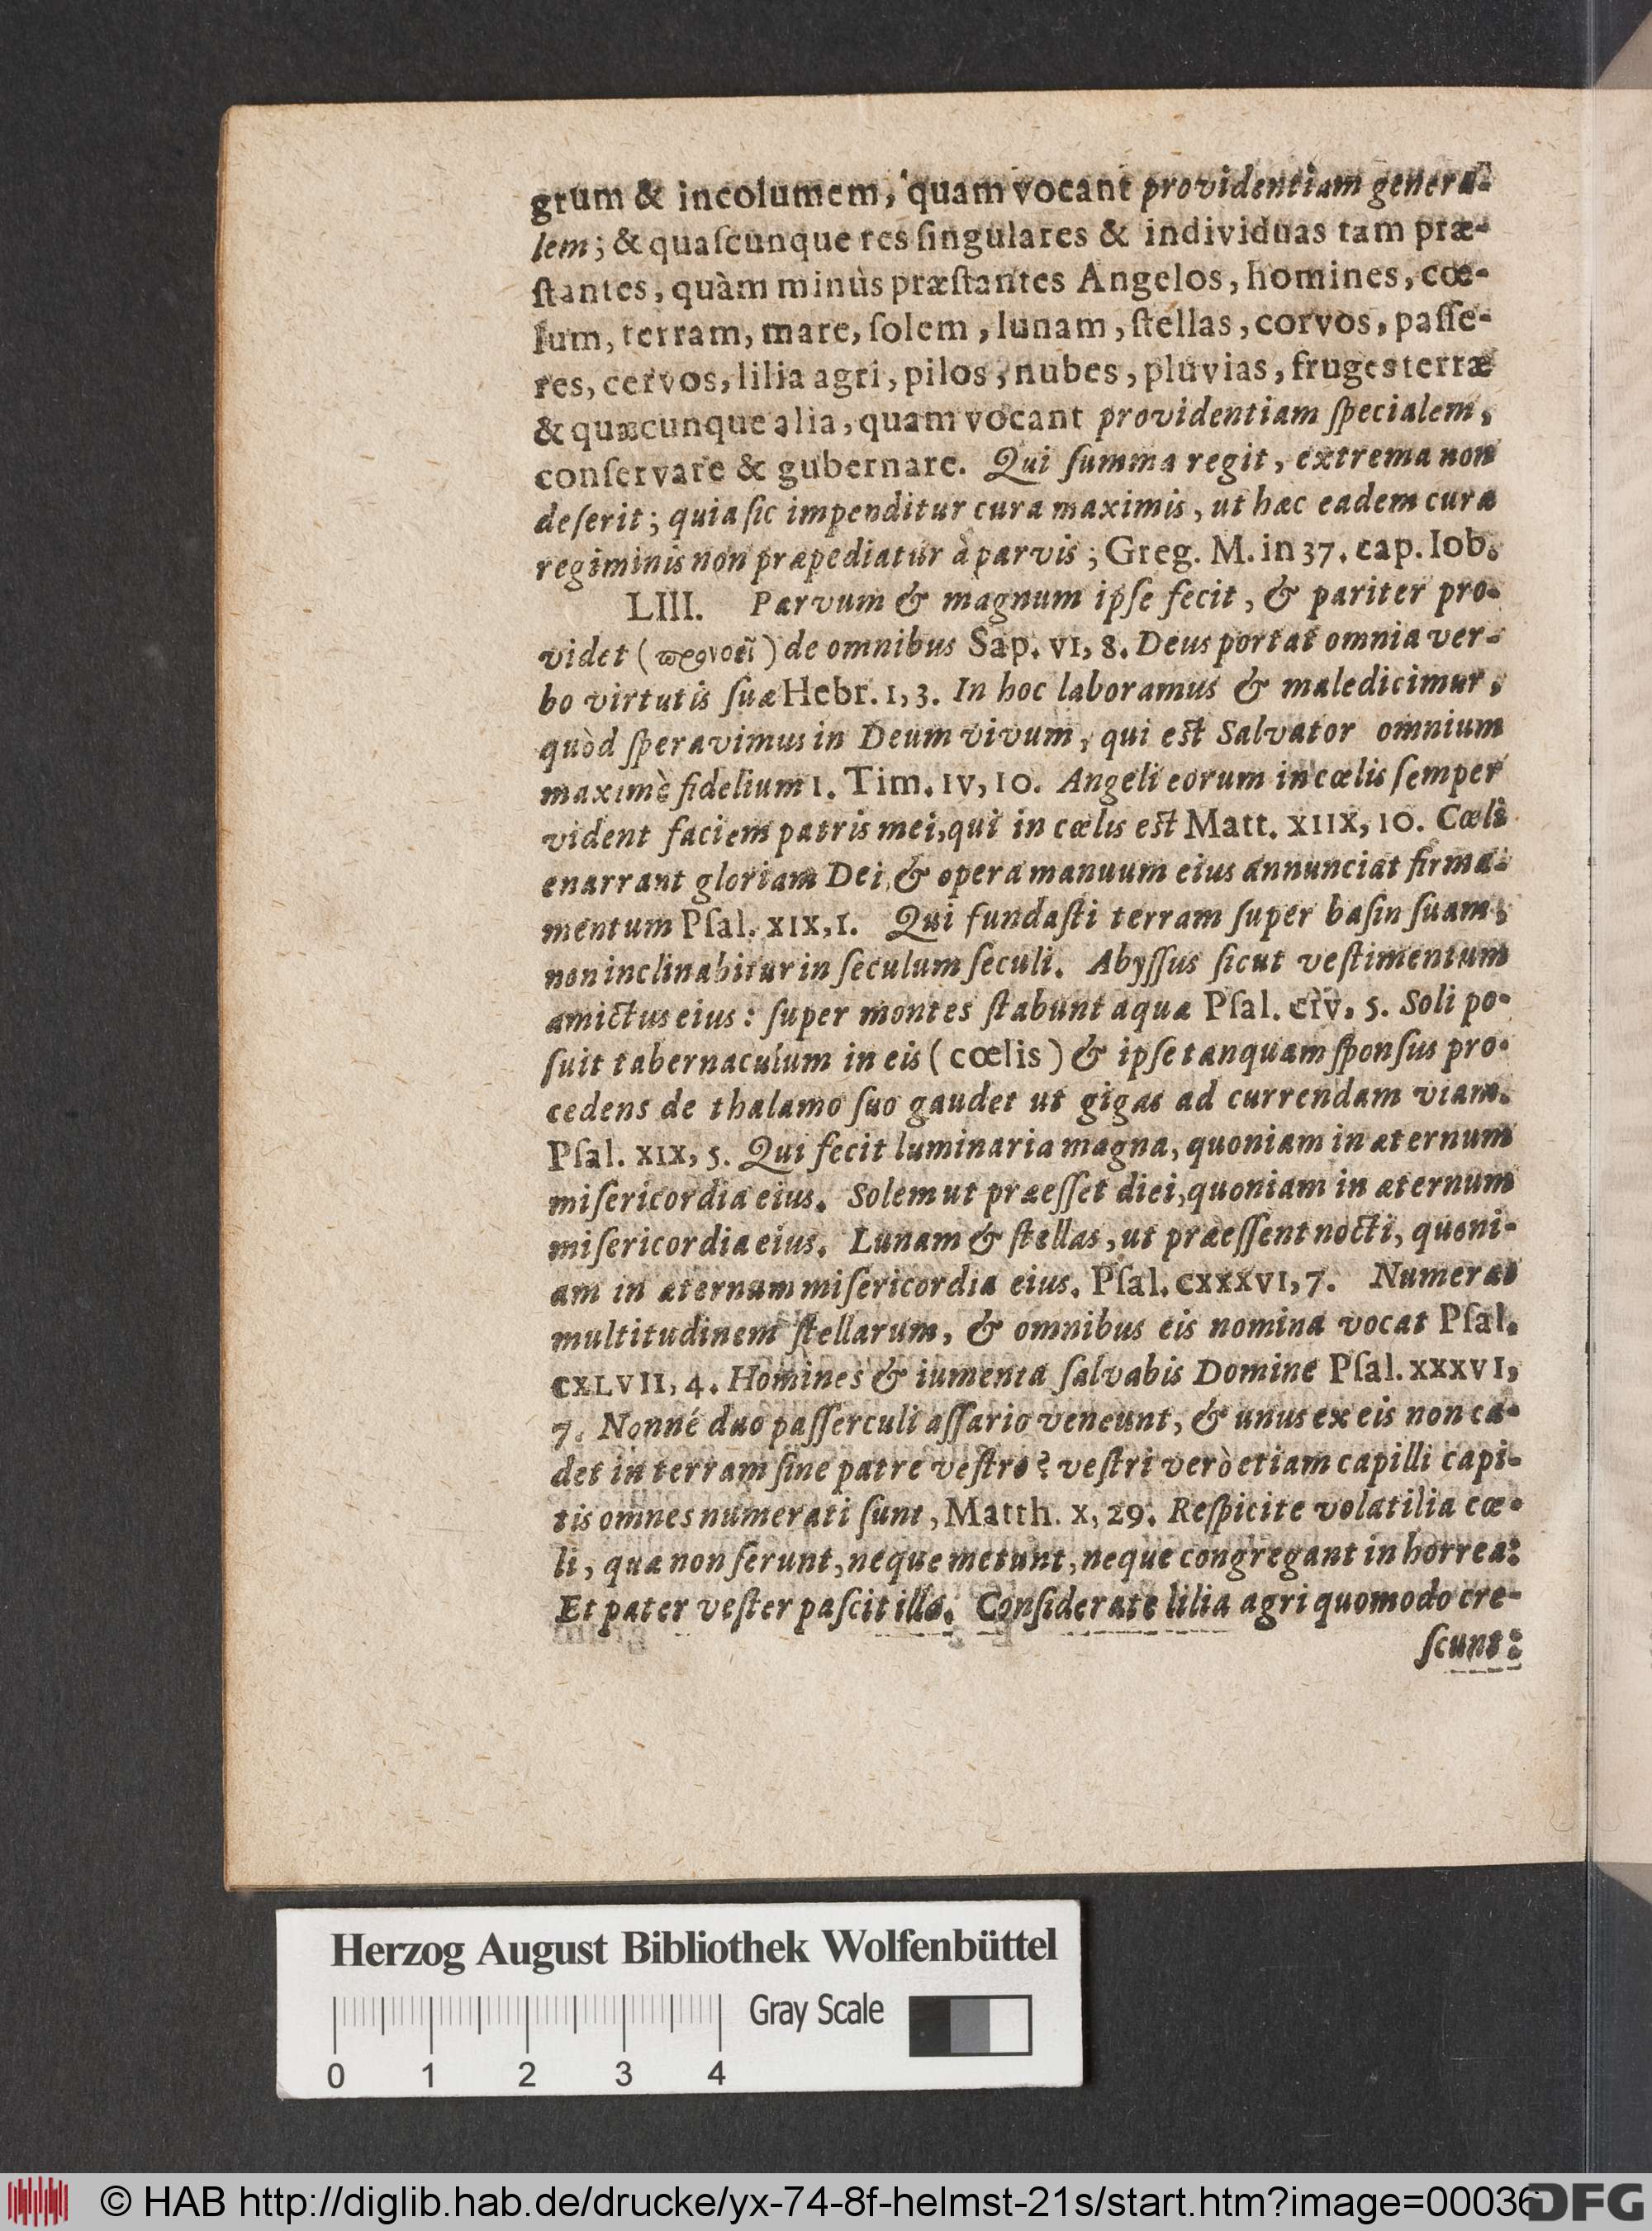 grum & incolumem, quam vocant providentiam genera-
lem; & quaſcunque res ſingulares & individuas tam præ-
ſtantes, quàm minùs præſtantes Angelos, homines, cœ-
lum, terram, mare, ſolem, lunam, ſtellas, corvos, paſſe-
res, cervos, lilia agri, pilos, nubes, pluvias, fruges terræ
& quæcunque alia, quam vocant providentiam ſpecialem,
conſervare & gubernare. Qui ſumma regit, extrema non
deſerit; quia ſic impenditur cura maximis, ut hæc eadem cura
regiminis non præpediatur à parvis; Greg. M. in 37. cap. Iob.
LIII. Parvum & magnum ipſe fecit, & pariter pro-
videt (προνοεῖ) de omnibus Sap. VI, 8. Deus portat omnia ver-
bo virtutis ſuæ Hebr. 1, 3. In hoc laboramus & maledicimur,
quòd ſperavimus in Deum vivum, qui eſt Salvator omnium
maximè fidelium 1. Tim. IV, 10. Angeli eorum in cœlis ſemper
vident faciem patris mei, qui in cœlis eſt Matt. XIIX, 10. Cœli
enarrant gloriam Dei, & opera manuum eius annunciat firma-
mentum Pſal. XIX, 1. Qui fundaſti terram ſuper baſin ſuam,
non inclinabitur in ſeculum ſeculi. Abyſſus ſicut veſtimentum
amictus eius: ſuper montes ſtabunt aquæ Pſal. CIV, 5. Soli po-
ſuit tabernaculum in eis (cœlis) & ipſe tanquam ſponſus pro-
cedens de thalamo ſuo gaudet ut gigas ad currendam viam.
Pſal. XIX, 5. Qui fecit luminaria magna, quoniam in æternum
miſericordia eius. Solem ut præeſſet diei, quoniam in æternum
miſericordia eius. Lunam & ſtellas, ut præeſſent nocti, quoni-
am in æternum miſericordia eius. Pſal. CXXXVI, 7. Numerat
multitudinem ſtellarum, & omnibus eis nomina vocat Pſal.
CXLVII, 4. Homines & iumenta ſalvabis Domine Pſal. XXXVI,
7. Nonné duo paſſerculi aſſario veneunt, & unus ex eis non ca-
det in terram ſine patre veſtro? veſtri verò etiam capilli capi-
tis omnes numerati ſunt, Matth. X, 29. Reſpicite volatilia cœ-
li, quæ non ſerunt, neque metunt, neque congregant in horrea:
Et pater veſter paſcit illa. Conſiderate lilia agri quomodo cre-
ſcunt:
Herzog August Bibliothek Wolfenbüttel
Gray Scale
0 1 2 3 4
© HAB http://diglib.hab.de/drucke/yx-74-8f-helmst-21s/start.htm?image=00036
DFG